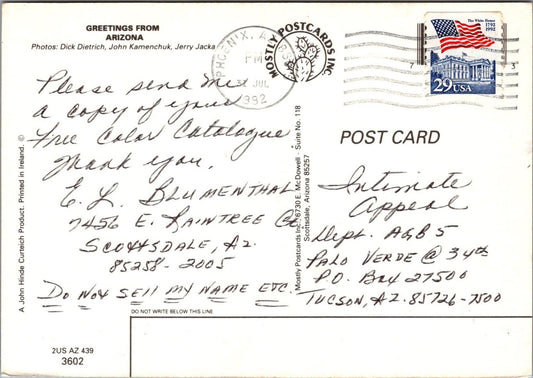 GREETINGS FROM
ARIZONA
Photos: Dick Dietrich, John Kamenchuk, Jerry Jacka
Please send me
a copy of your
Free Color Catalogue
Thank you.
E. L. BLUMENTHAL
7456 E. RAINTREE Ct
SCOTTSDALE, AZ.
85258-2005
DO NOT SELL MY NAME ETC.
DO NOT WRITE BELOW THIS LINE
2US AZ 439
3602
A John Hinde Curteich Product. Printed in Ireland. ©
PHOENIX, A
PM
31 JUL
1992
MOSTLY POSTCARDS INC
Mostly Postcards Inc., 6730 E. McDowell - Suite No. 118
Scottsdale, Arizona 85257
The White House
1792
1992
29 USA
7
3
POST CARD
Intimate
Appeal
Dept. AGB5
PALO VERDE @ 34th
P.O. Box 27500
TUCSON, AZ. 85726-7500